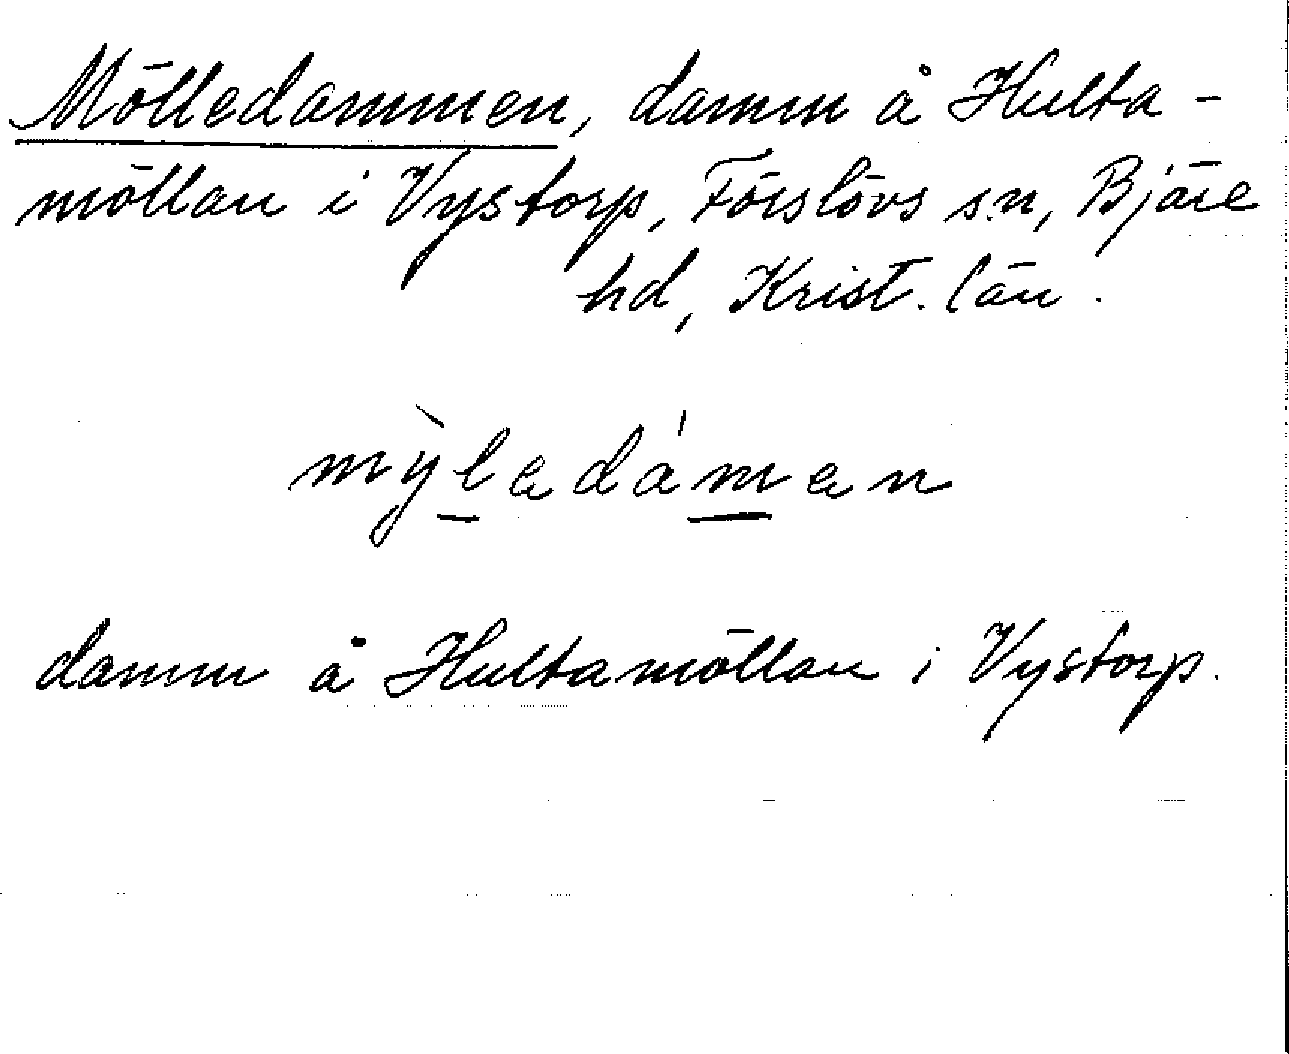 Mölledammen, damm å Hulta-
möllan i Vystorp, Förslövs sn, Bjäre
hd, Krist. län.
mỳlədámən
damm å Hultamöllan i Vystorp.